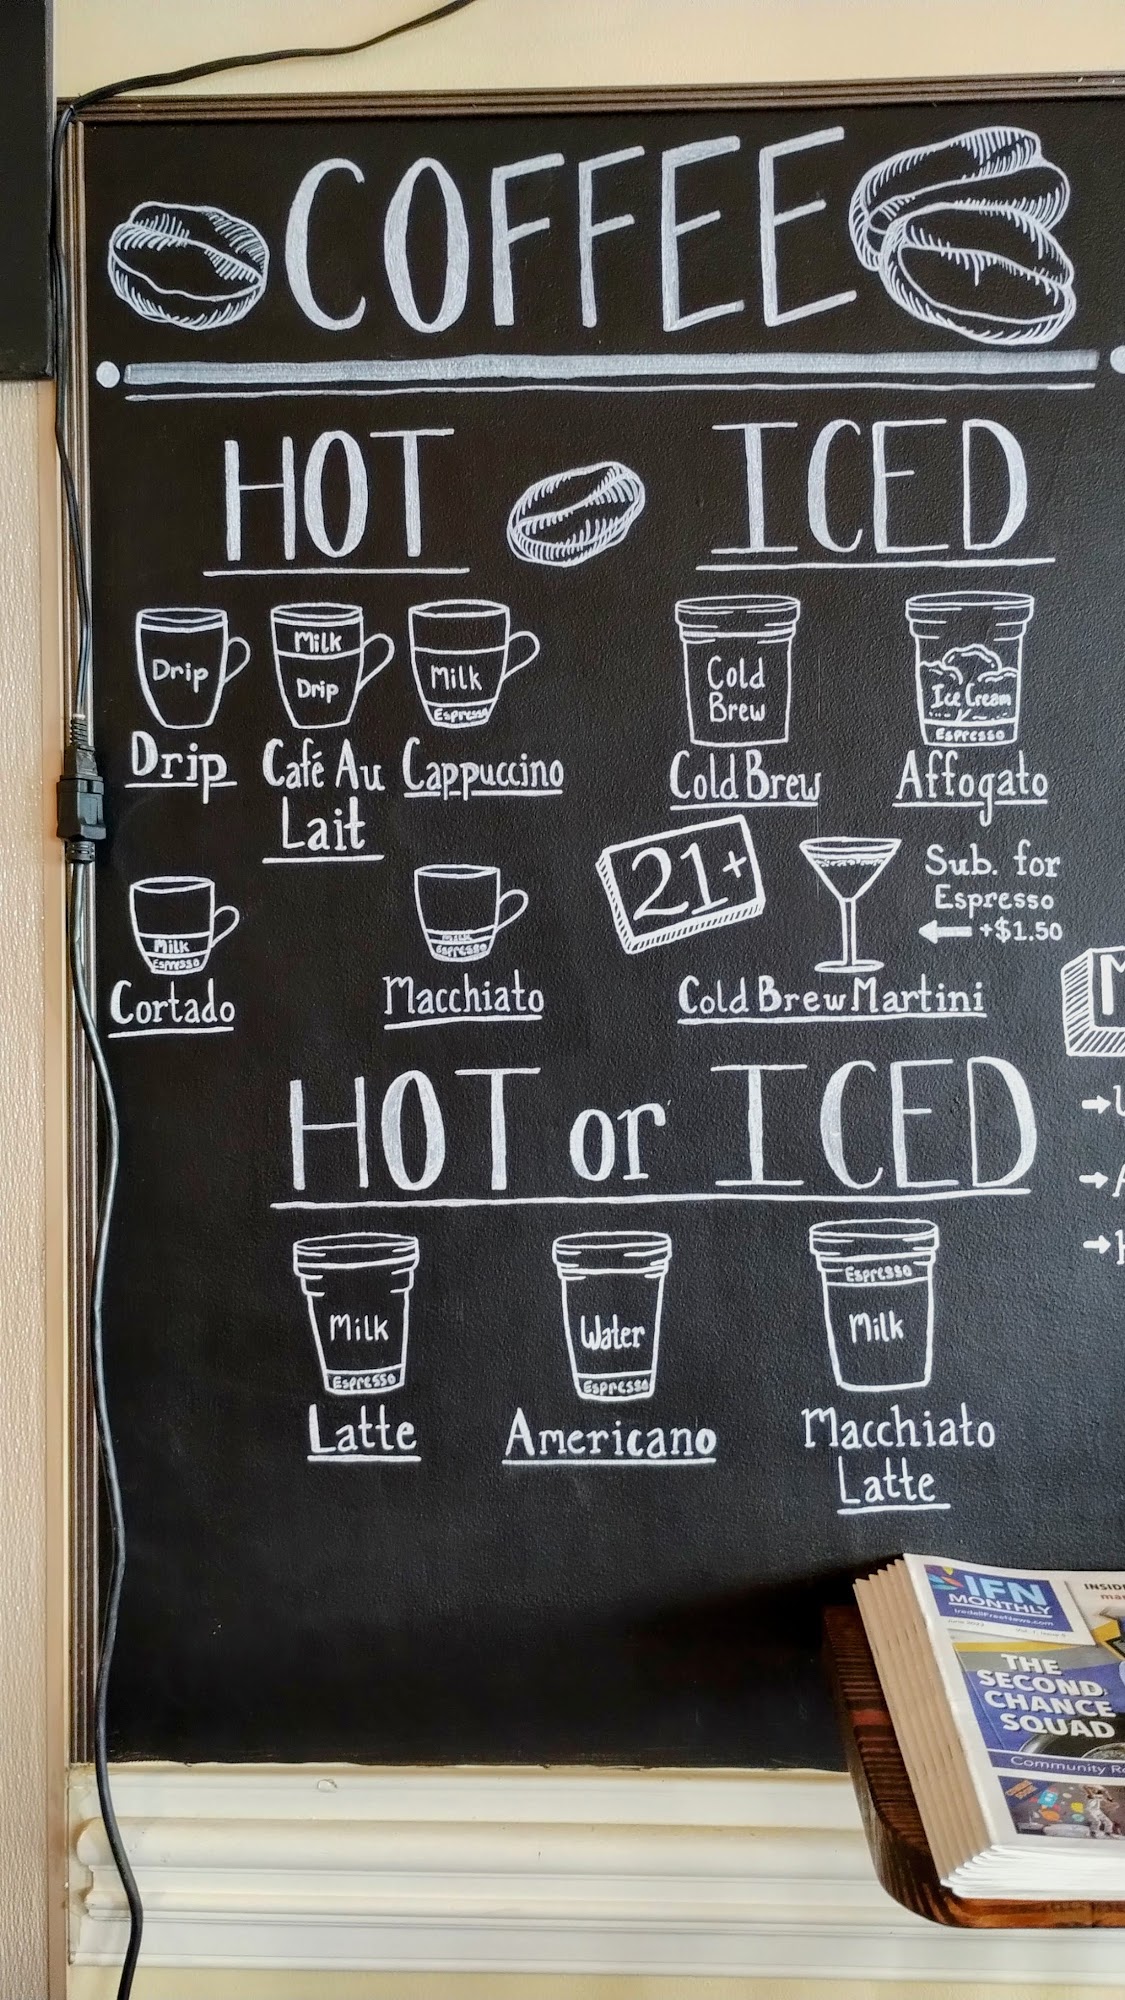 COFFEE
HOT
ICED
Drip
Drip
Milk
Drip
Café Au
Lait
Milk
Espresso
Cappuccino
Cold
Brew
Cold Brew
Ice Cream
Espresso
Affogato
Milk
Espresso
Cortado
Milk
Espresso
Macchiato
21+
Sub. for
Espresso
+$1.50
Cold Brew Martini
HOT or ICED
Milk
Espresso
Latte
Water
Espresso
Americano
Espresso
Milk
Macchiato
Latte
IFN
MONTHLY
IredellFreeNews.com
THE
SECOND
CHANCE
SQUAD
Community